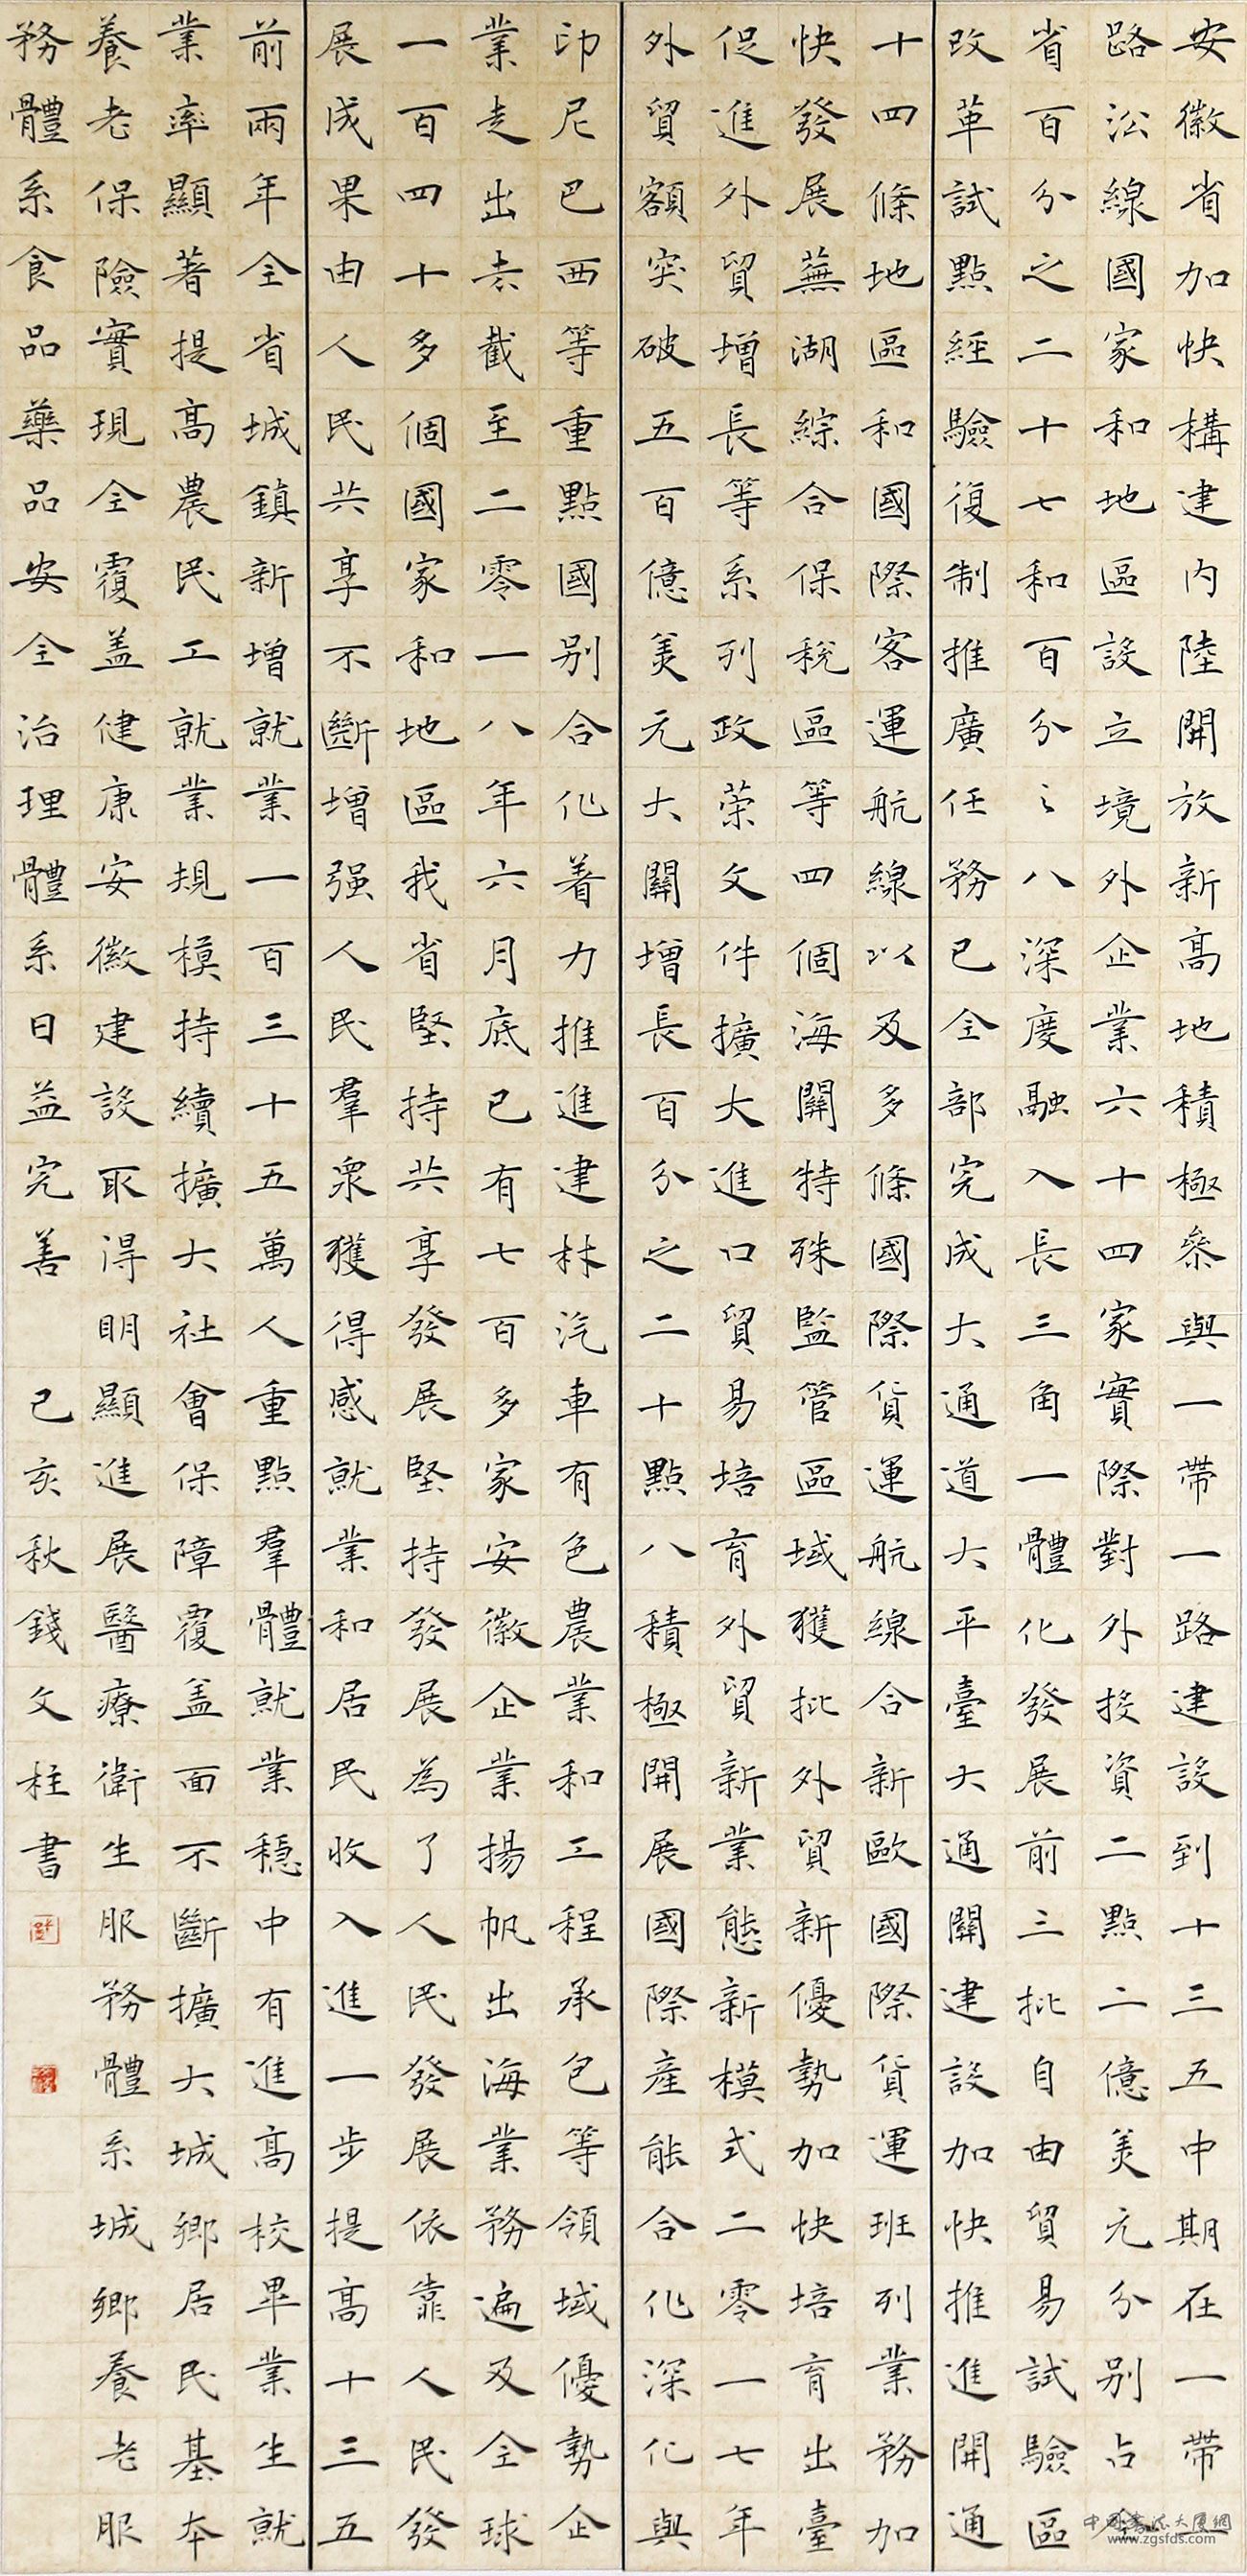 安徽省加快構建内陸開放新高地積極參與一帶一路建設到十三五中期在一帶一
路沿線國家和地區設立境外企業六十四家實際對外投資二點二億美元分别占全
省百分之二十七和百分之八深度融入長三角一體化發展前三批自由貿易試驗區
改革試點經驗復制推廣任務已全部完成大通道大平臺大通關建設加快推進開通
十四條地區和國際客運航線以及多條國際貨運航線合新歐國際貨運班列業務加
快發展蕪湖綜合保税區等四個海關特殊監管區域獲批外貿新優勢加快培育出臺
促進外貿增長等系列政策文件擴大進口貿易培育外貿新業態新模式二零一七年
外貿額突破五百億美元大關增長百分之二十點八積極開展國際産能合作深化與
印尼巴西等重點國别合作着力推進建材汽車有色農業和工程承包等領域優勢企
業走出去截至二零一八年六月底已有七百多家安徽企業揚帆出海業務遍及全球
一百四十多個國家和地區我省堅持共享發展堅持發展為了人民發展依靠人民發
展成果由人民共享不斷增强人民羣衆獲得感就業和居民收入進一步提高十三五
前兩年全省城鎮新增就業一百三十五萬人重點羣體就業穩中有進高校畢業生就
業率顯著提高農民工就業規模持續擴大社會保障覆盖面不斷擴大城鄉居民基本
養老保險實現全覆盖健康安徽建設取得明顯進展醫療衛生服務體系城鄉養老服
務體系食品藥品安全治理體系日益完善 己亥秋錢文柱書
中国書法大厦網
www.zgsfds.com